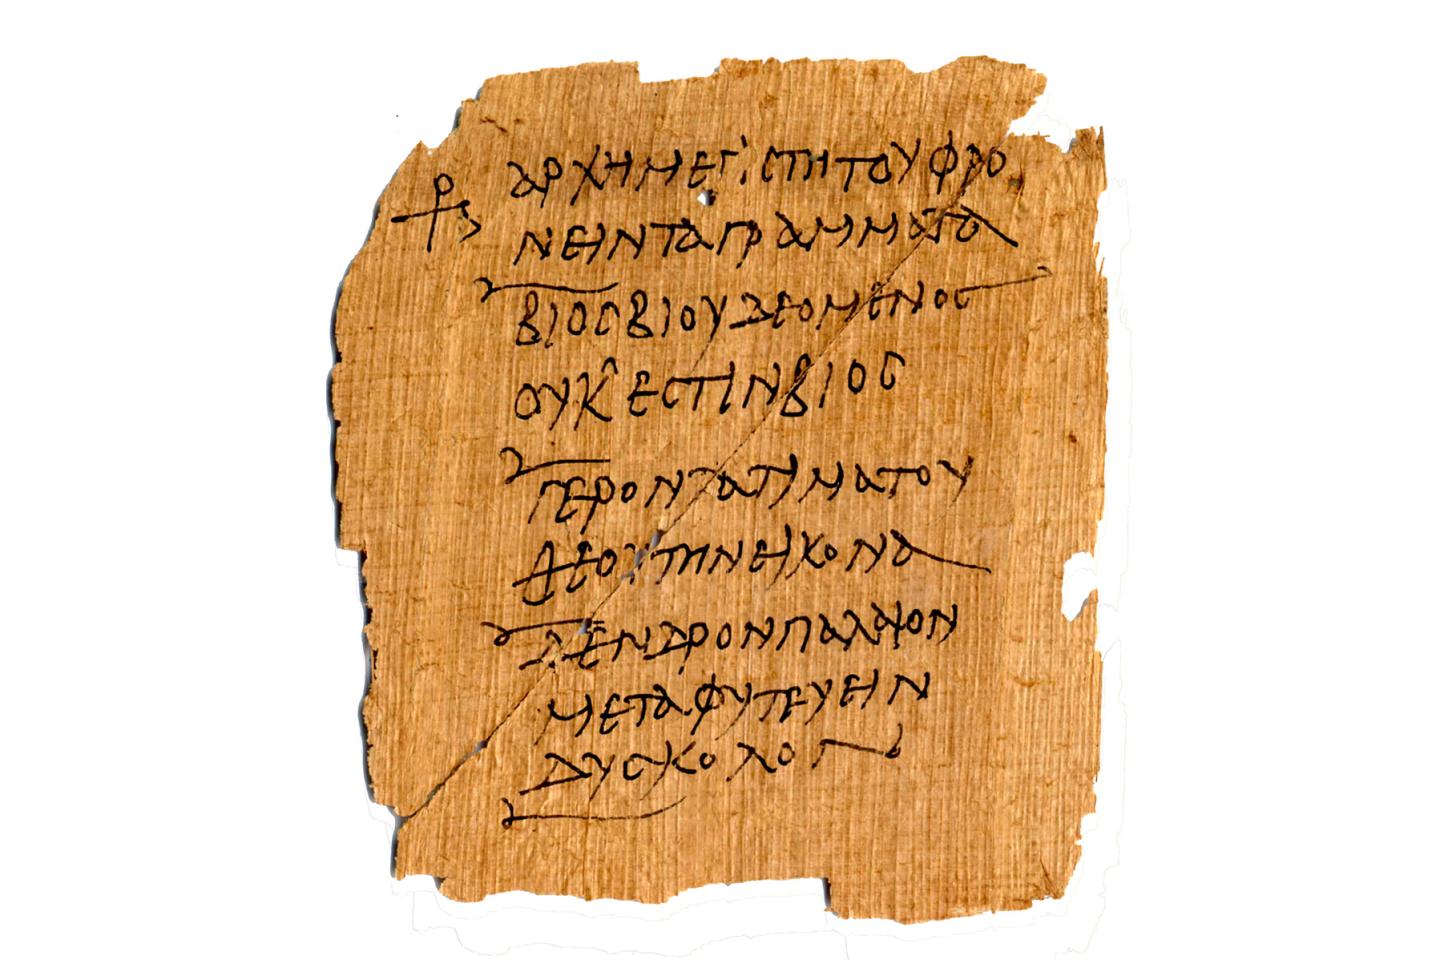 ⳨ ΑΡΧΗΜΕΓΙϹΤΗΤΟΥΦΡΟ
ΝΕΙΝΤΑΓΡΑΜΜΑΤΑ
ΒΙΟϹΒΙΟΥΔΕΟΜΕΝΟϹ
ΟΥΚΕϹΤΙΝΒΙΟϹ
ΓΕΡΟΝΤΑΤΙΜΑΤΟΥ
ΘΕΟΥΤΗΝΕΙΚΟΝΑ
ΔΕΝΔΡΟΝΠΑΛΑΙΟΝ
ΜΕΤΑΦΥΤΕΥΕΙΝ
ΔΥϹΚΟΛΟΝ